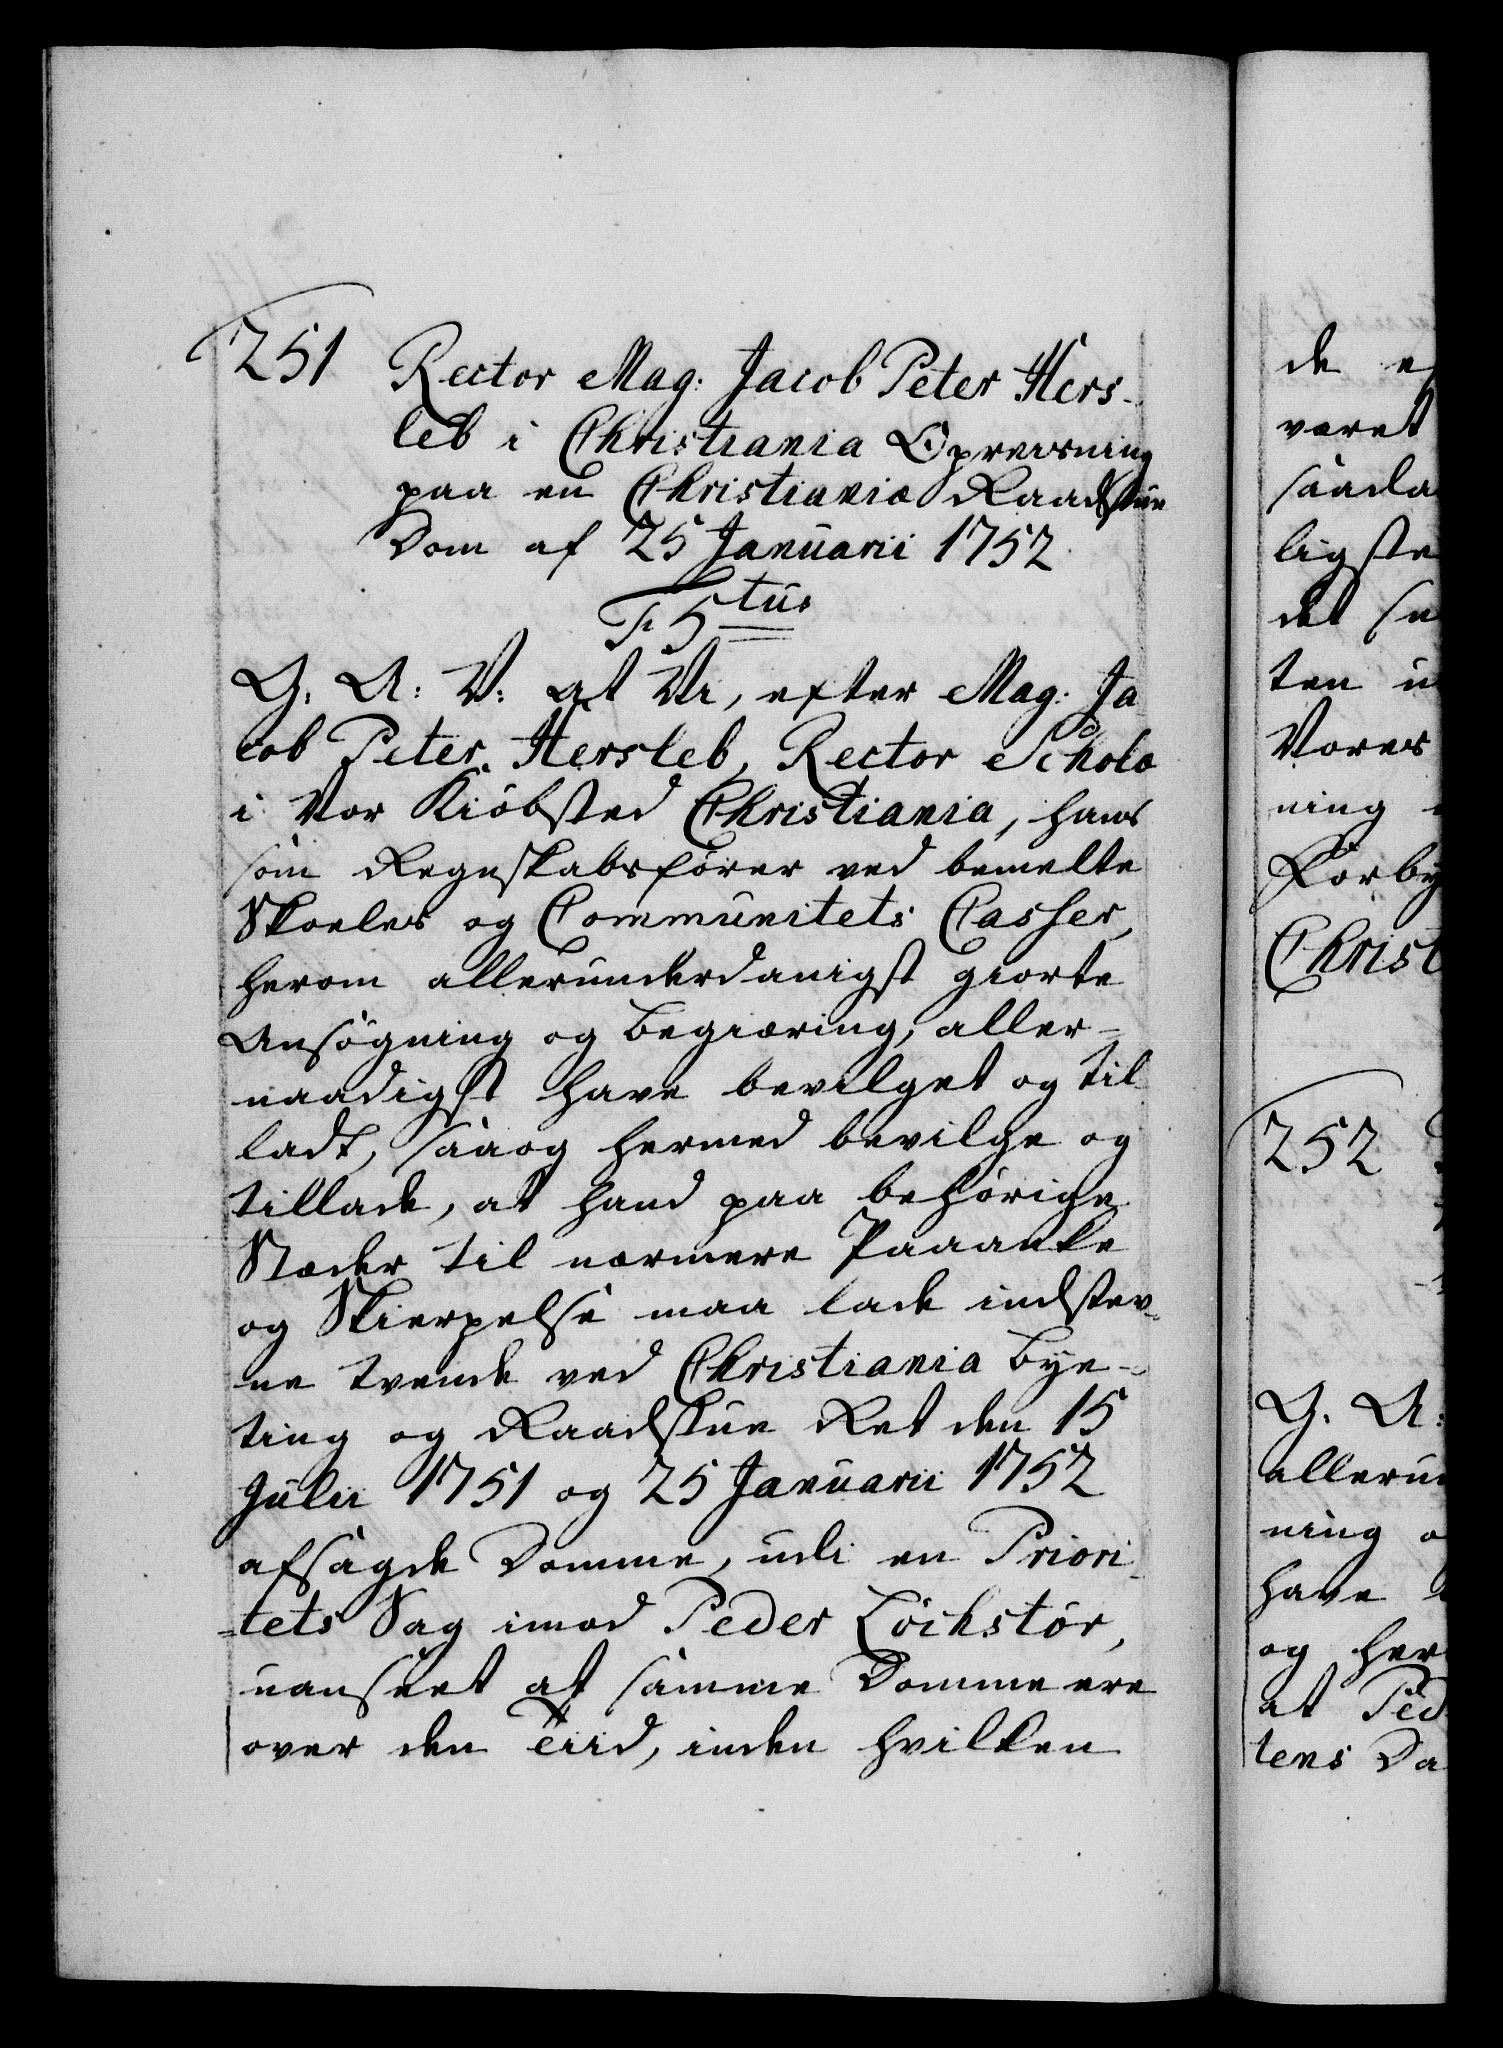 251 Rector Mag: Jacob Peter Hers-
leb i Christiania Opreisning
paa en Christianiæ Raadstue
Dom af 25 Januarii 1752
F: 5tus
G: A: V: at Vi, efter Mag: Ja
cob Peter Hersleb, Rector Scholæ
i Vor Kiöbsted Christiania, hans
som Regnskabsfører ved bemelte
Skoeles og Communitets Casser,
herom allerunderdanigst giorte
Ansøgning og begiæring, aller-
naadigst have bevilget og til
ladt, saa og hermed bevilge og
tillade, at hand paa behörige
Stæder til nærmere Paaanke
og Skierpelse maa lade indstev-
ne tvende ved Christiania bye-
ting og Raadstue Ret den 15
Julii 1751 og 25 Januarii 1752
afsagde Domme, udi en Priori-
tets Sag imod Peder Löchstör,
uanseet at samme Domme ere
over den Tiid, inden hvilken
de
været
saada
ligste
det
ten
Vores
ning
Forby
Christ
252
G: A:
allerun
ning
have
og her
at Ped
tens Da